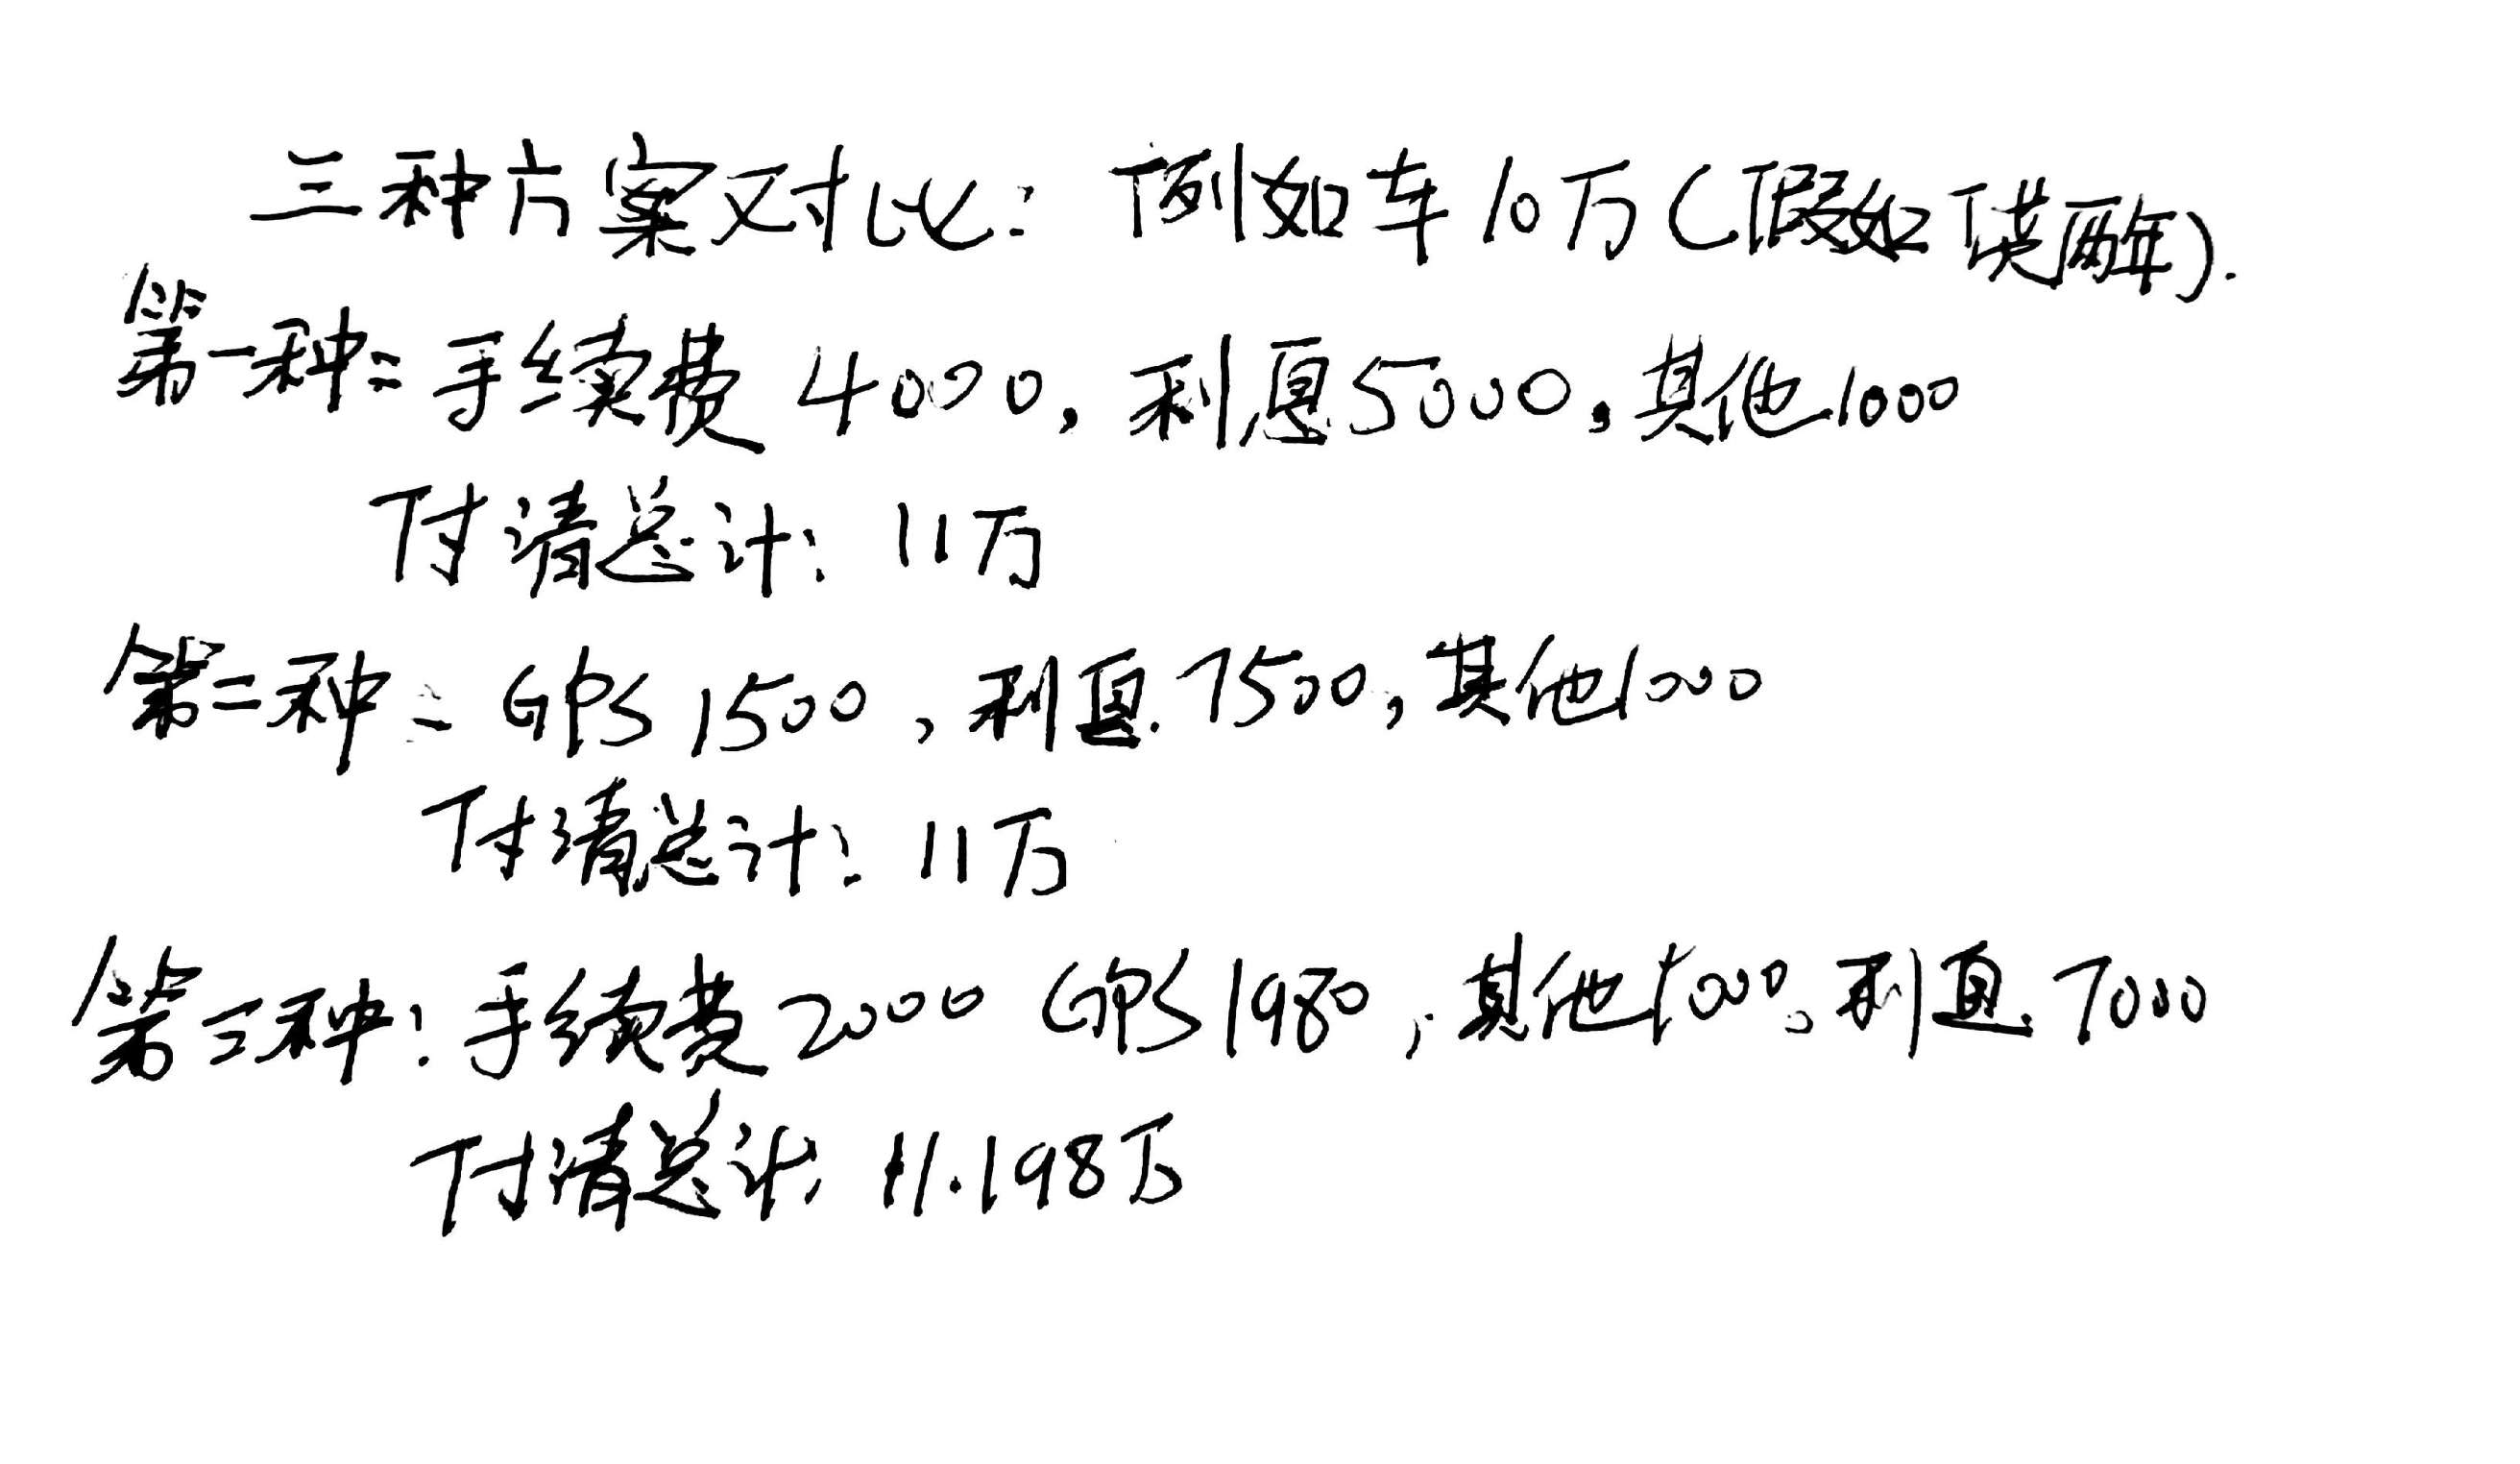 三种方案对比：例如车10万（假如供两年）.
第一种：手续费 4000，利息5000，其他1000
付清总计：11万
第二种：GPS 1500，利息.7500，其他1000
付清总计：11万
第三种：手续费2000 GPS 1980，其他1000。利息.7000
付清总计：11.198万